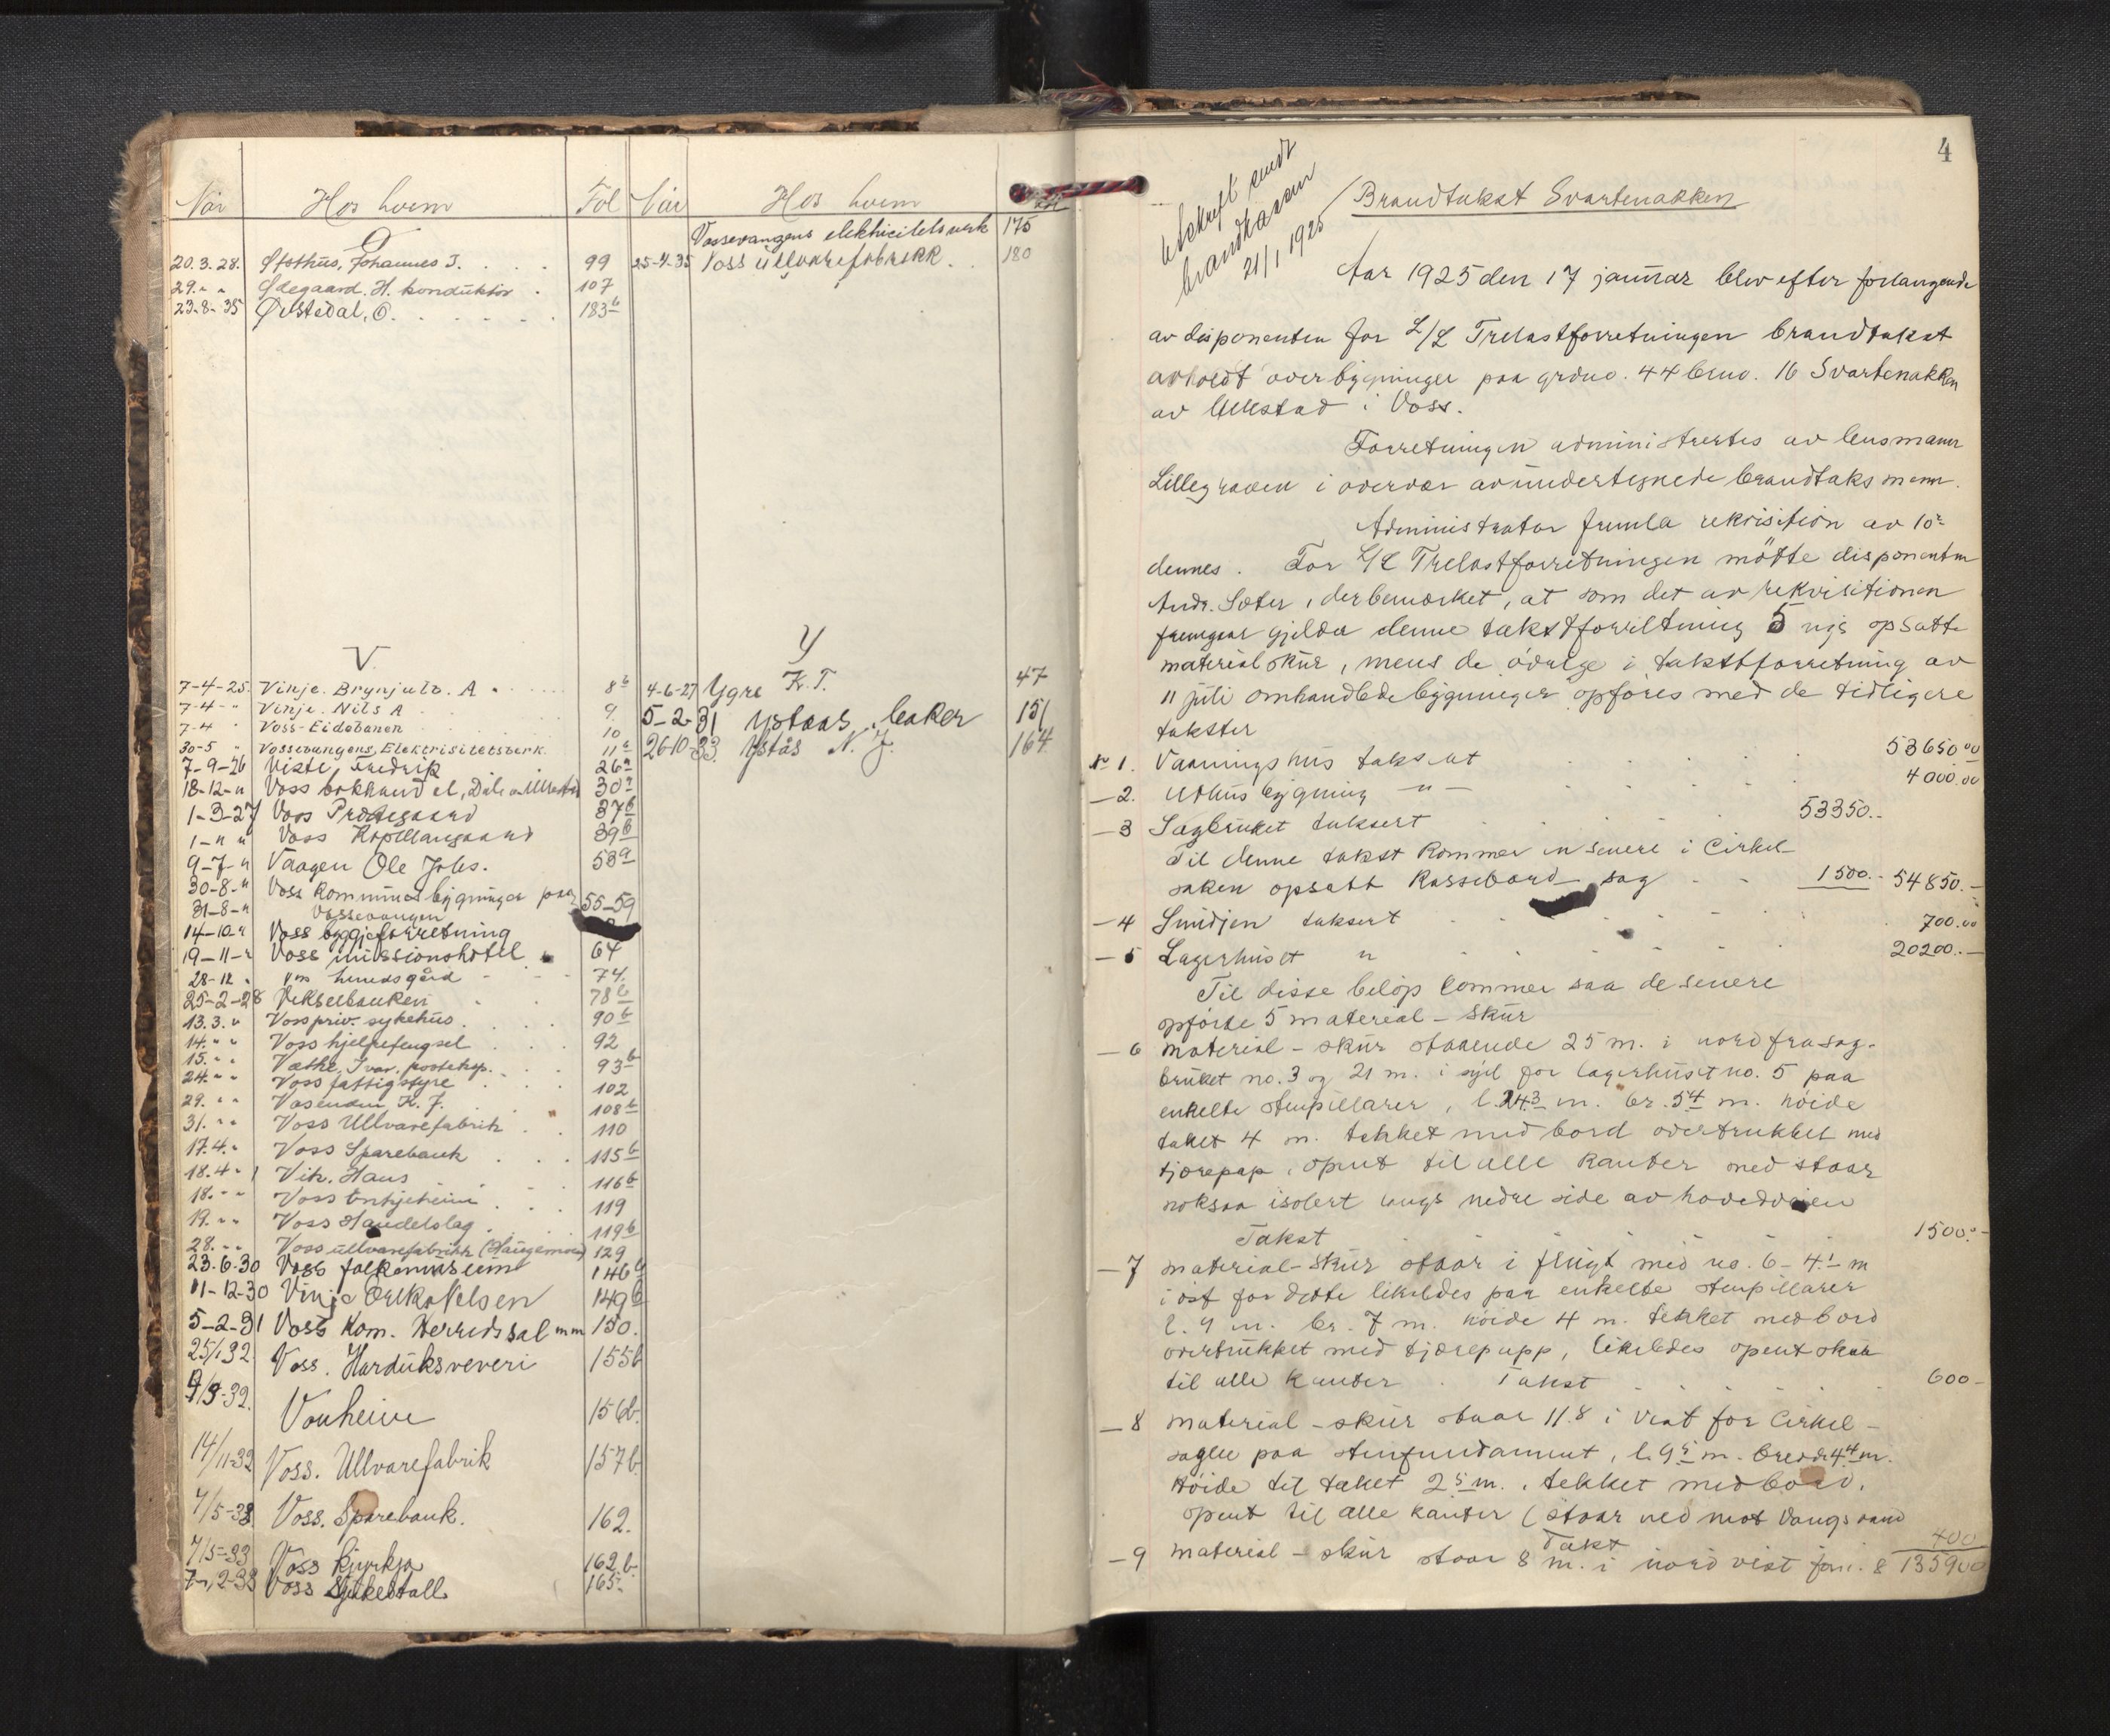 Når Hos hvem Fol Når Hos hvem
Ø
Vossevangens elektricitetsverk 175
20.3.28. Østhus, Johannes J. 99 25-4-35 Voss ullvarefabrikk 180
29. " " Ødegaard. H. konduktør 107
23-8-35 Ørstedal, O. 183b
V. Y
7-4-25. Vinje. Brynjulv. A 8b 4-6-27 Ygre K.T. 47
7-4- " Vinje. Nils A 9 5-2-31 Ystaas, baker 151
7-4 " Voss-Eidebanen 10 26-10-33 Ystås N. J. 164
30-5 " Vossevangens, Elektrisitetsverk 11a
7-9-26 Viste, Fredrik 26a
18-12-" Voss bokhandel, 30a
1-3-27 Voss Prestegaard 37b
1-" " Voss Kaptl\langaard 39b
9-7-" Vaagen Ole Johs. 53a
30-8-" Voss kommunes bygninger paa 55-59
31-8-" Vossevangen
14-10-" Voss byggjeforretning
19-11-" Voss missionshotel 64
28-12 " " herredsgård 74.
25-2-28 Vekselbanken 78b
13.3. " Voss priv. sykehus 90b
14. " " Voss hjelpefengsel 92
15. " " Væthe, Ivar, postekep. 93b
24. " " Voss fattigstyre 102
29. " " Vasenden K. J. 108b
31. " " Voss Ullvarefabrik 110
17.4. " Voss Sparebank 115b
18.4. " Vik. Hans 116b
18. " " Voss Enkjeheim 119
19. " " Voss Handelslag 119b
28. " " Voss ullvarefabrikk (Haugamoen) 129
23.6-30 Voss folkemuseum 146b
11-12-30 Vinje Nelsen 149b
5-2-31 Voss Kom. Herredssal mm 150.
25/1 32. Voss. Harduksveveri 155b
9/9-32. Vonheim 156b.
14/11-32 Voss. Ullvarefabrik 157b
7/5-33 Voss. Sparebank. 162.
7/5-33 Voss kyrkja 162.b.
7-12-33 Voss Sjukestall 165.
4
Utskrift sendt
brandkassan
21/1 1925
Brandtakst Svartenakken
Aar 1925 den 17 januar blev efter forlangende
av disponenten for L/L Trelastforretningen brandtakst
avholdt over bygninger paa grdno. 44 brno. 16 Svartenakken
av Ullestad i Voss.
Forretningen administrertes av lensmann
Lillegraven i overvær av undertegnede brandtaksmenn.
Administrator fremla rekvisition av 10de
dennes. For L/L Trelastforretningen møtte disponenten
Andr. Sæter, der bemærket, at som det av rekvisitionen
fremgaar gjelder denne takstforretning 5 nye opsatte
materialskur, mens de øvrige i takstforretning av
11 juli omhandlede bygninger opføres med de tidligere
takster
No 1. Vaaningshus taksert 53650.00
—2. Uthusbygning —"— 4000.00
—3 Sagbruket taksert 53350.-
Til denne takst kommer en senere i Cirkel-
saken opsatt Kassebord-sag 1500.- 54850.-
—4 Smidjen taksert 700.00
—5 Lagerhuset " 20200.-
Til disse beløp kommer saa de senere
opførte 5 matereal-skur
—6 Material-skur staaende 25 m. i nord fra sag-
bruket no. 3 og 21 m. i syd for lagerhuset no. 5 paa
enkelte stenpillarer, l. 14.3 m. br. 5.4 m. høide
taket 4 m. tekket med bord overtrukket med
tjærepap, opent til alle kanter med staar
noksaa isolert langs nedre side av hovedveien
Takst 1500.-
—7 Material-skur staar i flugt med no. 6 - 4.1 m
i øst for dette likeledes paa enkelte stenpillarer
l. 9 m. br. 7 m. høide 4 m. tekket med bord
overtrukket med tjærepapp, likeledes opent skur
til alle kanter. Takst 600-
—8 Material-skur staar 11.8 i vest for Cirkel-
saglee paa stenfundament, l. 9.5 m. bredde 4.4 m.
Høide til taket 2.5 m., tekket med bord,
opent til alle kanter (staar ned mot Vangsvand
Takst 400
—9 Material-skur staar 8 m. i nord vest for n. 8 135900